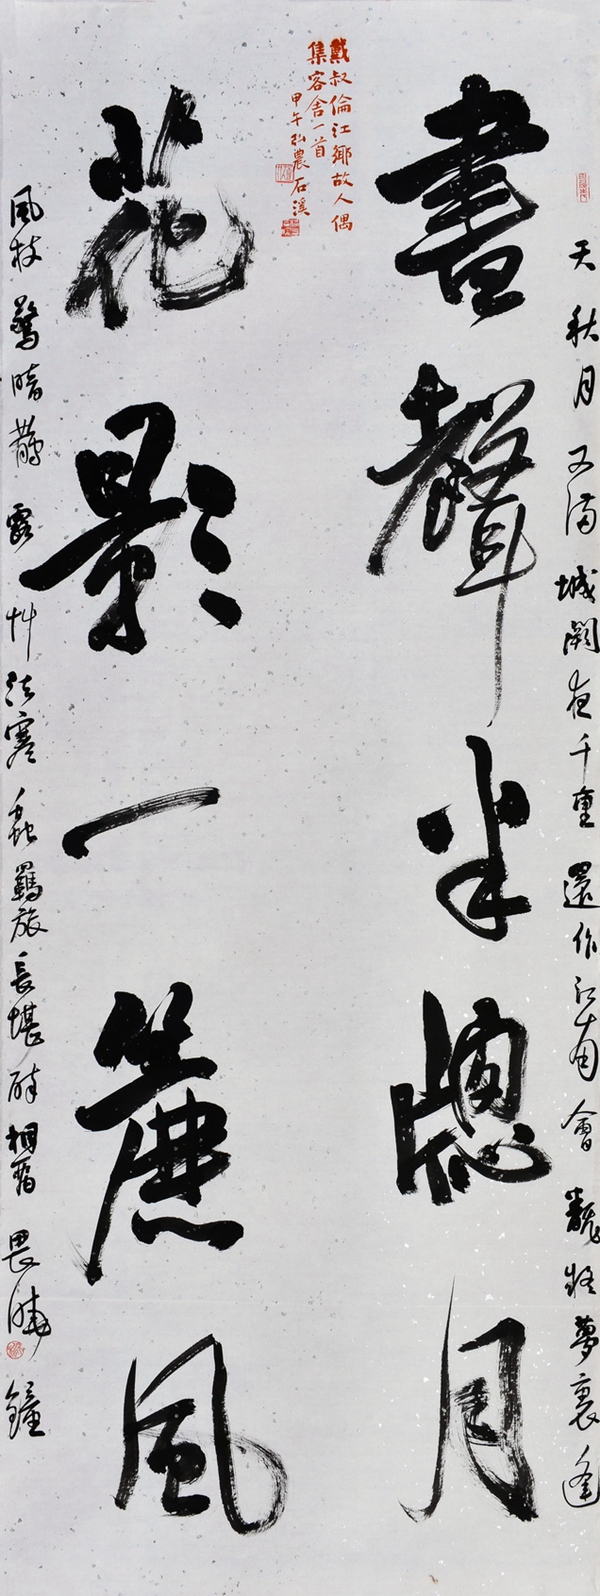 天秋月又滿城闕夜千重還作江南會翻疑夢裏逢
書聲半牕月
戴叔倫江鄉故人偶
集客舍一首
甲午弘農石溪
花影一簾風
風枝驚暗鵲露艸泣寒蟲羈旅長堪醉相留畏曉鐘